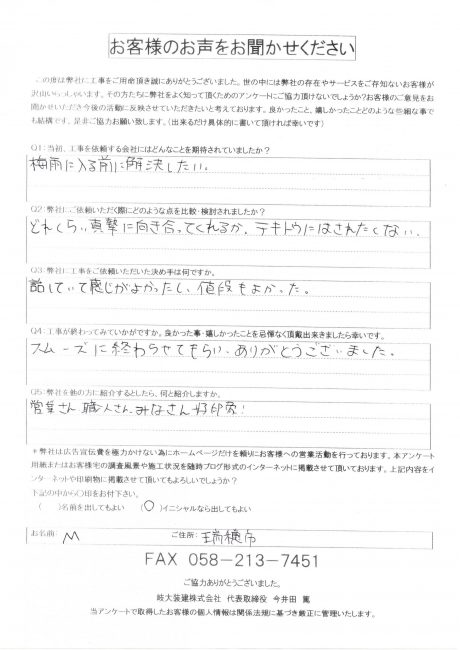 お客様のお声をお聞かせください
この度は弊社に工事をご用命頂き誠にありがとうございました。世の中には弊社の存在やサービスをご存知ないお客様が
沢山いらっしゃいます。その方たちに弊社をよく知って頂くためのアンケートにご協力頂けないでしょうか？お客様のご意見をお
聞かせいただき今後の活動に反映させていただきたいと考えております。良かったこと、嬉しかったことどのような些細な事で
も結構です。是非ご協力お願い致します。（出来るだけ具体的に書いて頂ければ幸いです）
Q1：当初、工事を依頼する会社にはどんなことを期待されていましたか？
梅雨に入る前に解決したい。
Q2：弊社にご依頼いただく際にどのような点を比較・検討されましたか？
どれくらい真摯に向き合ってくれるか。テキトウにはされたくない。
Q3：弊社に工事をご依頼いただいた決め手は何ですか。
話していて感じがよかったし、値段もよかった。
Q4：工事が終わってみていかがですか。良かった事・嬉しかったことを忌憚なく頂戴出来きましたら幸いです。
スムーズに終わらせてもらい、ありがとうございました。
Q5：弊社を他の方に紹介するとしたら、何と紹介しますか。
営業さん、職人さん、みなさん好印象！
＊弊社は広告宣伝費を極力かけない為にホームページだけを頼りにお客様への営業活動を行っております。本アンケート
用紙またはお客様宅の調査風景や施工状況を随時ブログ形式のインターネットに掲載させて頂いております。上記内容をイ
ンターネットや印刷物に掲載させて頂いてもよろしいでしょうか？
下記の中から○印をお付下さい。
（　　）名前を出してもよい　（○）イニシャルなら出してもよい
お名前：M　ご住所：瑞穂市
FAX 058-213-7451
ご協力ありがとうございました。
岐大装建株式会社　代表取締役　今井田　篤
当アンケートで取得したお客様の個人情報は関係法規に基づき厳正に管理いたします。